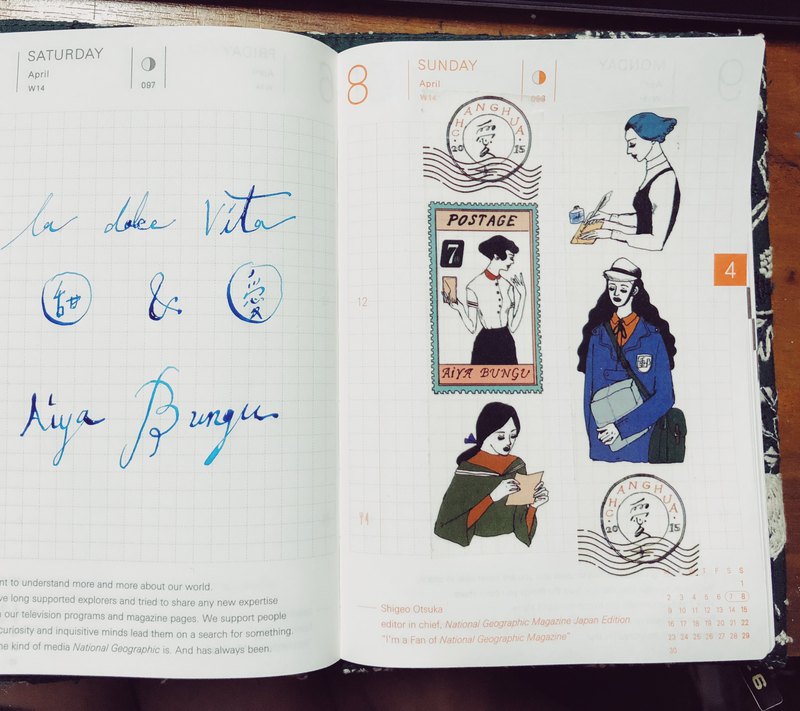 SATURDAY
April
W14
097
la dolce Vita
甜 & 愛
Aiya Bungu
nt to understand more and more about our world.
ve long supported explorers and tried to share any new expertise
n our television programs and magazine pages. We support people
curiosity and inquisitive minds lead them on a search for something.
he kind of media National Geographic is. And has always been.
8
SUNDAY
April
W14
098
CHANGHUA
愛
2015
POSTAGE
7
AiYA BUNGU
郵
CHANGHUA
愛
2015
12
4
Shigeo Otsuka
editor in chief, National Geographic Magazine Japan Edition
"I'm a Fan of National Geographic Magazine"
T F S S
1
2 3 4 5 6 7 8
9 10 11 12 13 14 15
16 17 18 19 20 21 22
23 24 25 26 27 28 29
30